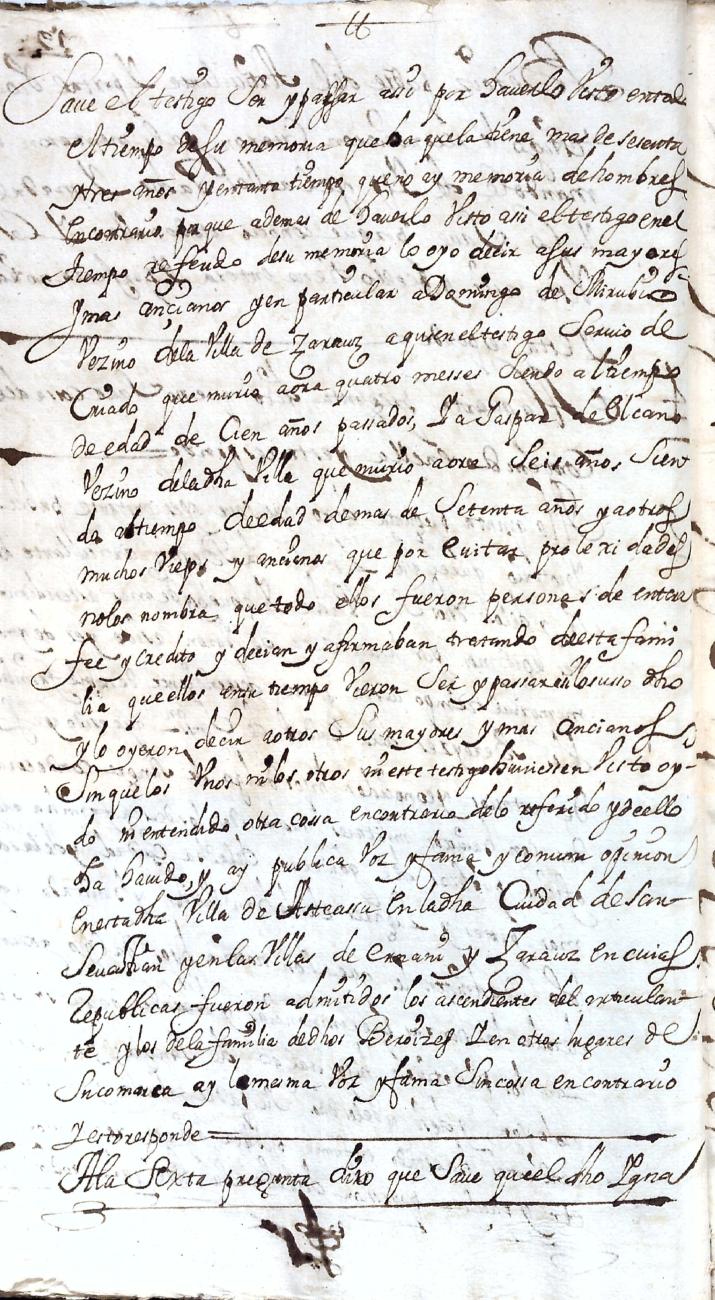 Save el testigo Ser y passar assi por haverlo Visto en todo
el tiempo de su memoria que ha que la tiene mas de sesenta
y tres años y en tanto tiempo que no ay memoria de hombres
en contrario porque ademas de haverlo Visto asi el testigo en el
tiempo referido de su memoria lo oyo decir a sus mayores
y mas ancianos y en particular a Domingo de
Vezino de la Villa de Zarauz a quien el testigo Servio de
Criado que murio aora quatro messes siendo al tiempo
de edad de Cien años passados, Y a Gaspar de Elcano
Vezino de la dha Villa que murio aora Seis años Sien
do al tiempo de edad de mas de Setenta años y a otros
muchos Viejos y ancianos que por evitar prolexidades
no los nombra que todo ellos fueron personas de entera
fee y credito y decian y afirmaban tratando de esta fami
lia que ellos en su tiempo Vieron Ser y passar lo susso dho
y lo oyeron decir a otros Sus mayores y mas ancianos
Sin que los Unos ni los otros ni este testigo huviesen Visto oy-
do ni entendido otra cossa en contrario de lo referido y de ello
ha havido, y ay publica Voz y fama y comun opinion
en esta dha Villa de Asteassu en la dha Ciudad de San
Sevastian y en las Villas de Ernani y Zarauz en cuias
Republicas fueron admitidos los ascendientes del articulan
te y los de la familia de dhos Beroizes Y en otros lugares de
Su comarca ay la mesma Voz y fama Sin cossa en contrario
Y esto responde
A la Sexta pregunta dixo que Save que el dho Ygna